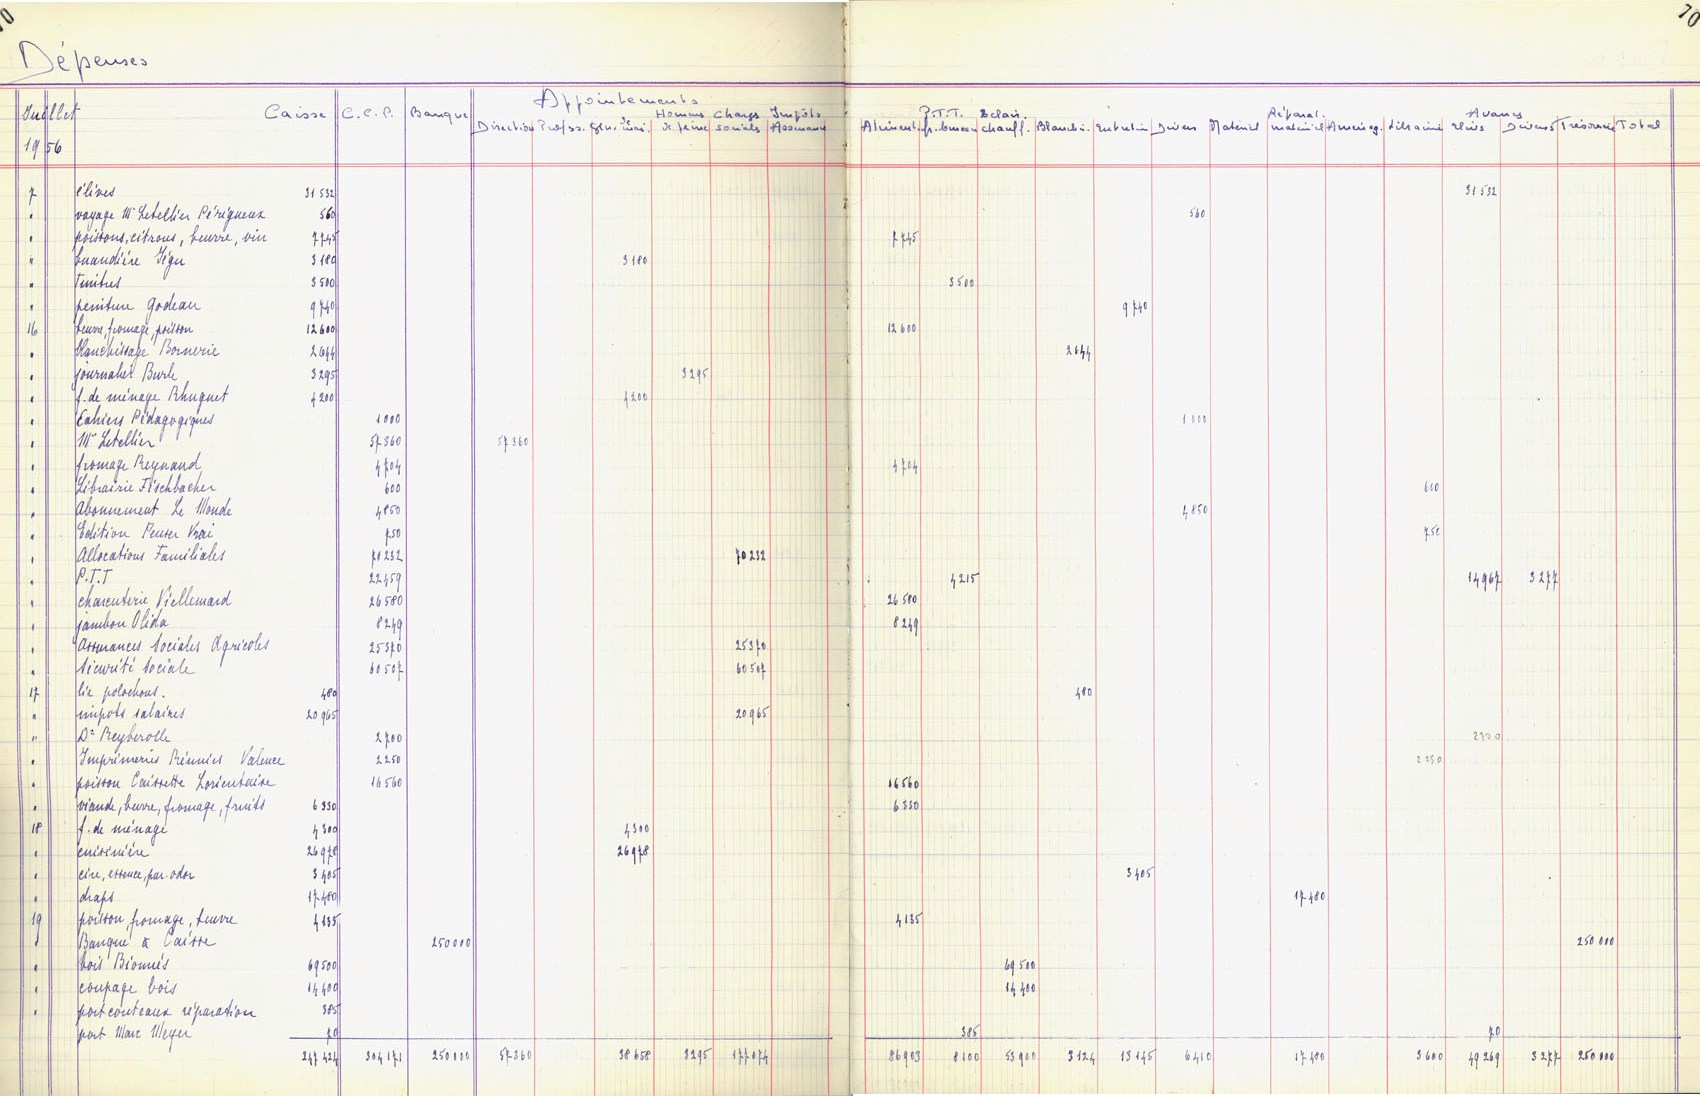 70 70
Dépenses
Juillet Caisse C.C.P. Banque Appointements P.T.T. Eclair. Réparat. Avances
Direction Profess. Gén. Hommes de peine Charges sociales Impôts Assurances Aliment. chauff. Blanchi. Entretien Divers Matériel matériel Aménag. Librairie élèves Divers Trésorerie Total
1956
7 élèves 31 532 31 532
" voyage Mr Letellier Périgueux 560 560
" poissons, citrons, beurre, vin 7 745 7 745
" buandière Jégu 3 180 3 180
" Timbres 3 500 3 500
" peinture Godeau 9 740 9 740
16 beurre, fromage, poisson 12 600 12 600
" blanchissage Bornerie 2 644 2 644
" journalier Burle 3 295 3 295
" f. de ménage Rhuguet 4 200 4 200
" Cahiers Pédagogiques 1 000 1 000
" Mr Letellier 57 360 57 360
" fromage Reynaud 4 704 4 704
" Librairie Fischbacher 600 600
" Abonnement Le Monde 4 850 4 850
" Edition Penser Vrai 750 750
" Allocations Familiales 70 232 70 232
" P.T.T 22 459 4 215 14 967 3 277
" charcuterie Viellemard 26 580 26 580
" jambon Olida 8 249 8 249
" Assurances Sociales Agricoles 25 370 25 370
" Sécurité Sociale 60 507 60 507
17 lit polochons. 480 480
" impôts salaires 20 965 20 965
" Dr Reyberolle 2 700 2 700
" Imprimeries Réunies Valence 2 250 2 250
" poisson Caissette Lorientaise 16 560 16 560
" viande, beurre, fromage, fruits 6 330 6 330
18 f. de ménage 4 300 4 300
" cuisinière 26 978 26 978
" cire, essence, par-odor 3 405 3 405
" draps 17 480 17 480
19 poisson, fromage, beurre 4 135 4 135
" Banque à Caisse 250 000 250 000
" bois Bionnés 69 500 69 500
" coupage bois 14 400 14 400
" port couteaux réparation 385
port Marc Meyer 70 385 70
247 424 304 171 250 000 57 360 38 658 3295 177 074 86 903 8 100 53 900 3 124 13 145 6 410 17 480 3 600 49 269 3 277 250 000